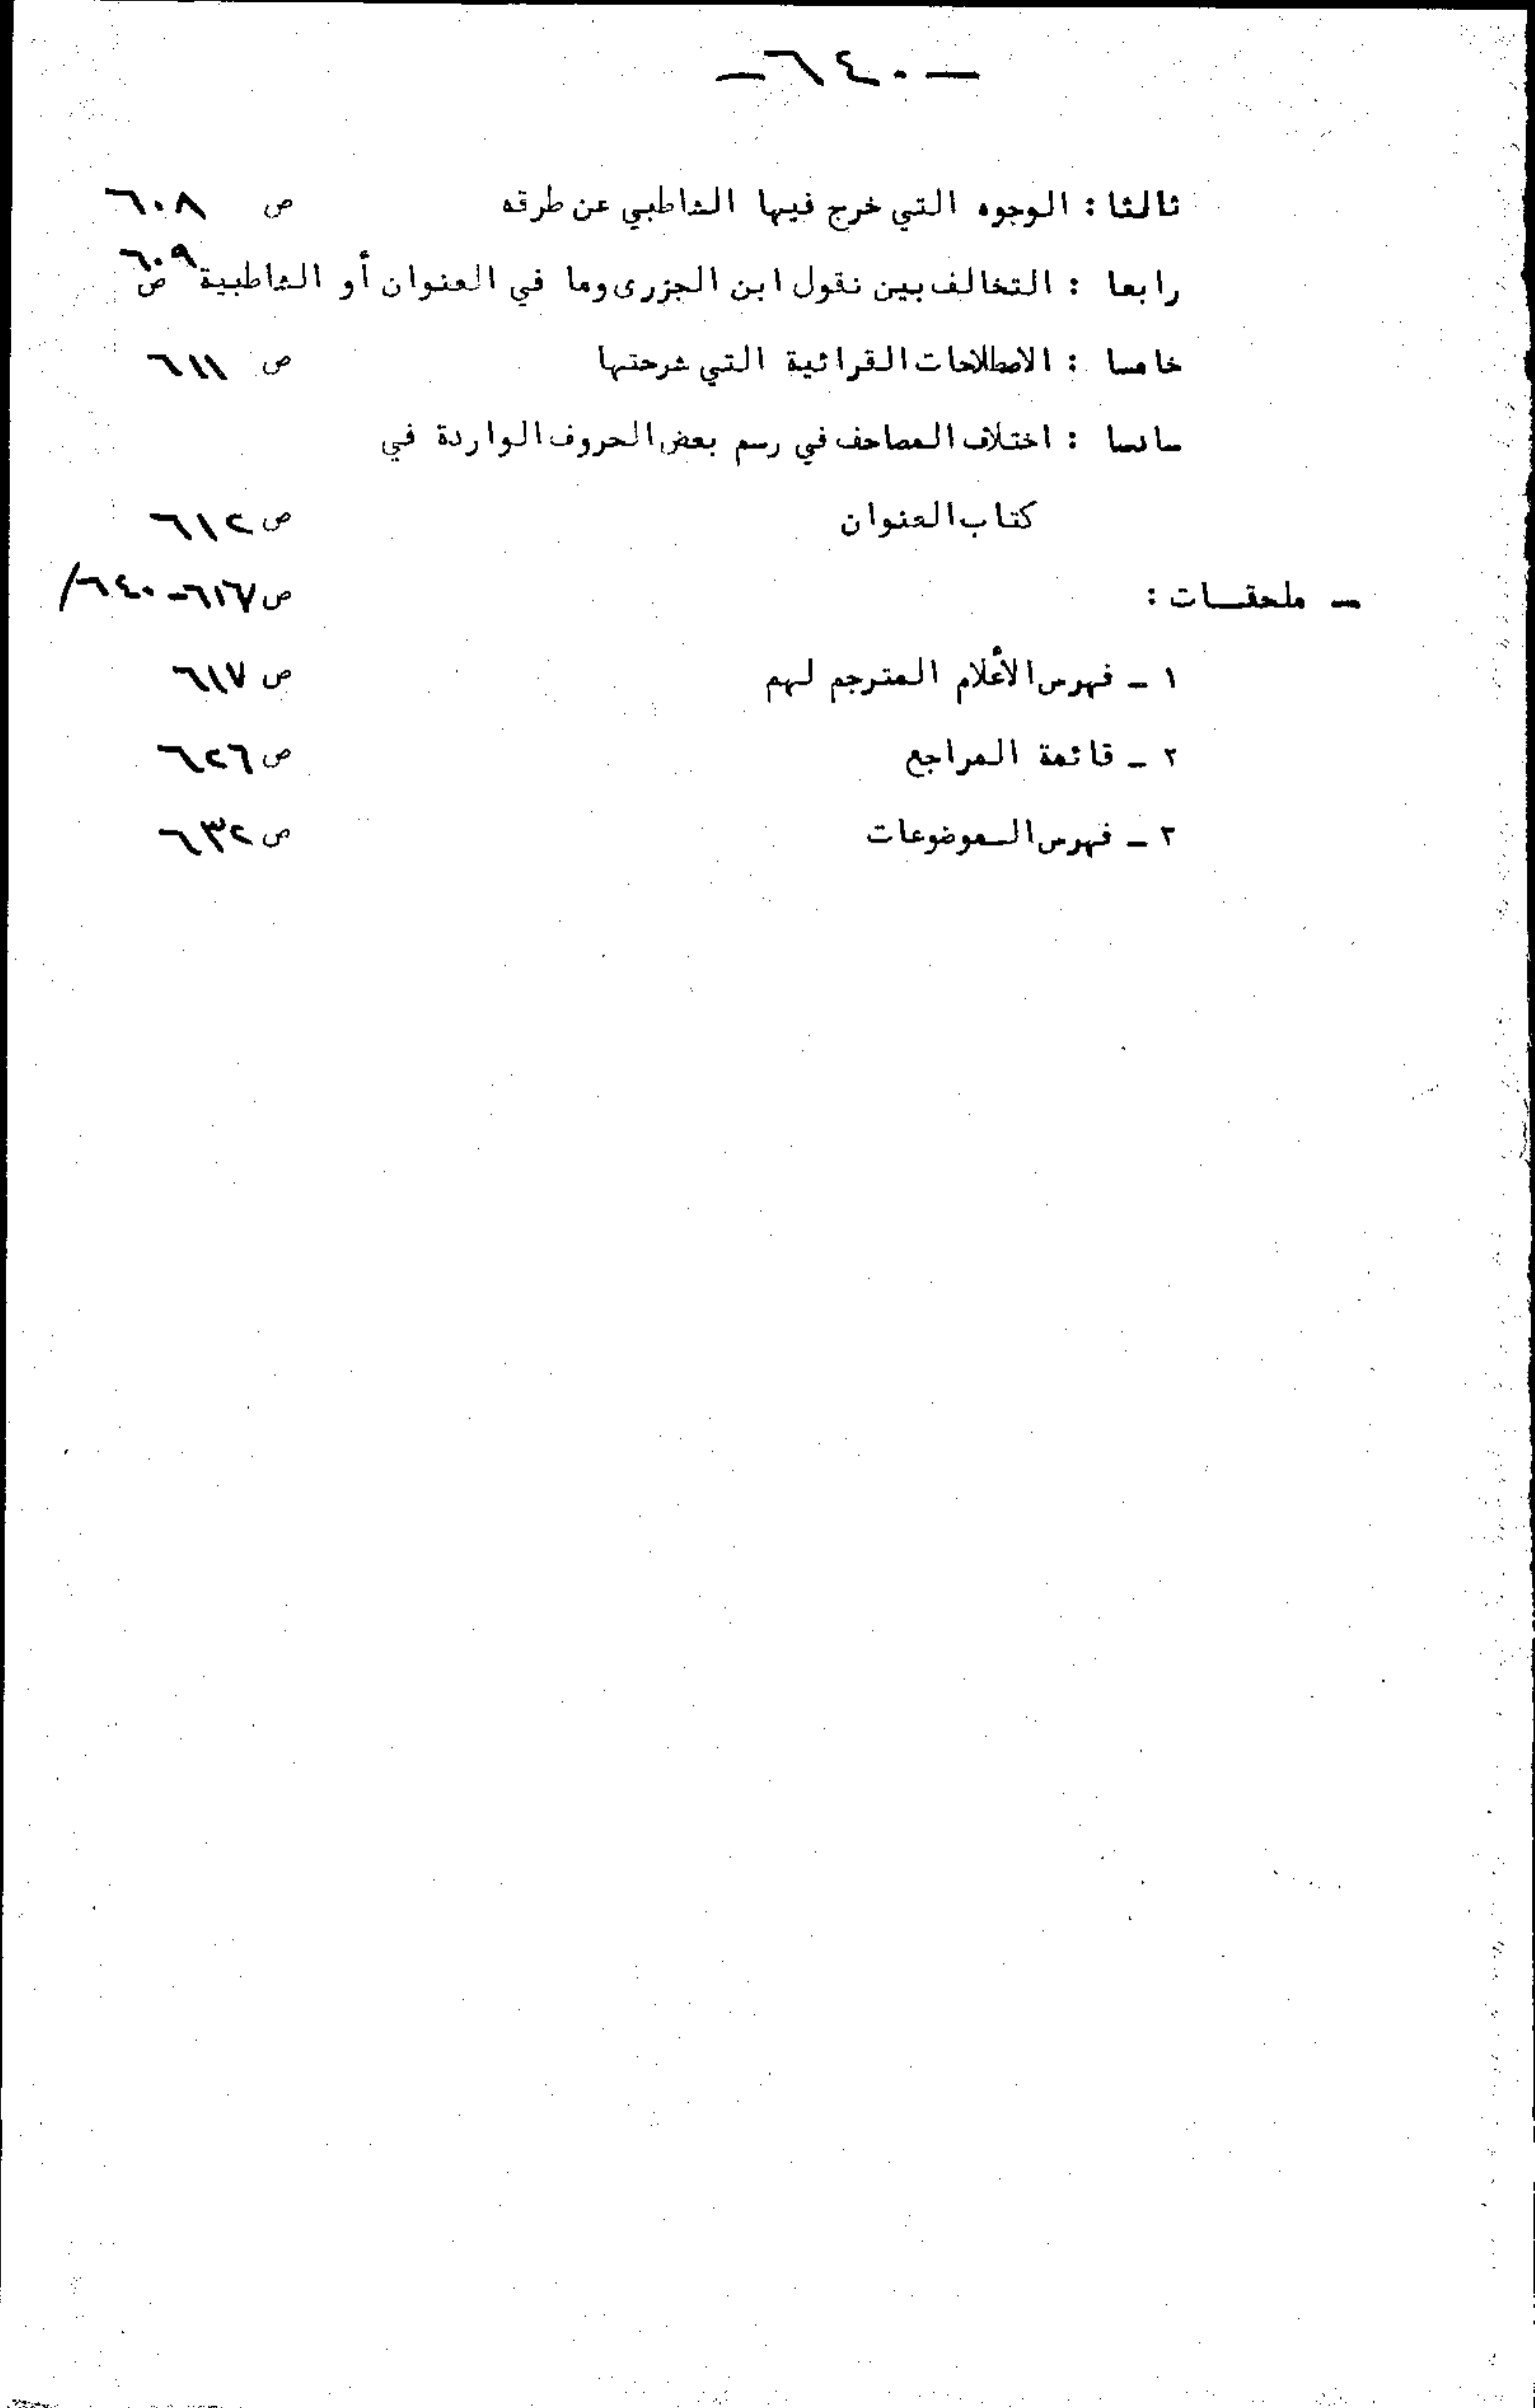 — ٦٤٠ —
ثالثا : الوجوه التي خرج فيها الشاطبي عن طرقه ص ٦٠٨
رابعا : التخالف بين نقول ابن الجزرى وما في العنوان أو الشاطبية ص ٦٠٩
خامسا : الاصطلاحات القرائية التي شرحتها ص ٦١١
سادسا : اختلاف المصاحف في رسم بعض الحروف الواردة في
كتاب العنوان ص ٦١٢
— ملحقات : ص ٦١٧ - ٦٤٠/
١ - فهرس الأعلام المترجم لهم ص ٦١٧
٢ - قائمة المراجع ص ٦٢٦
٣ - فهرس الموضوعات ص ٦٣٢